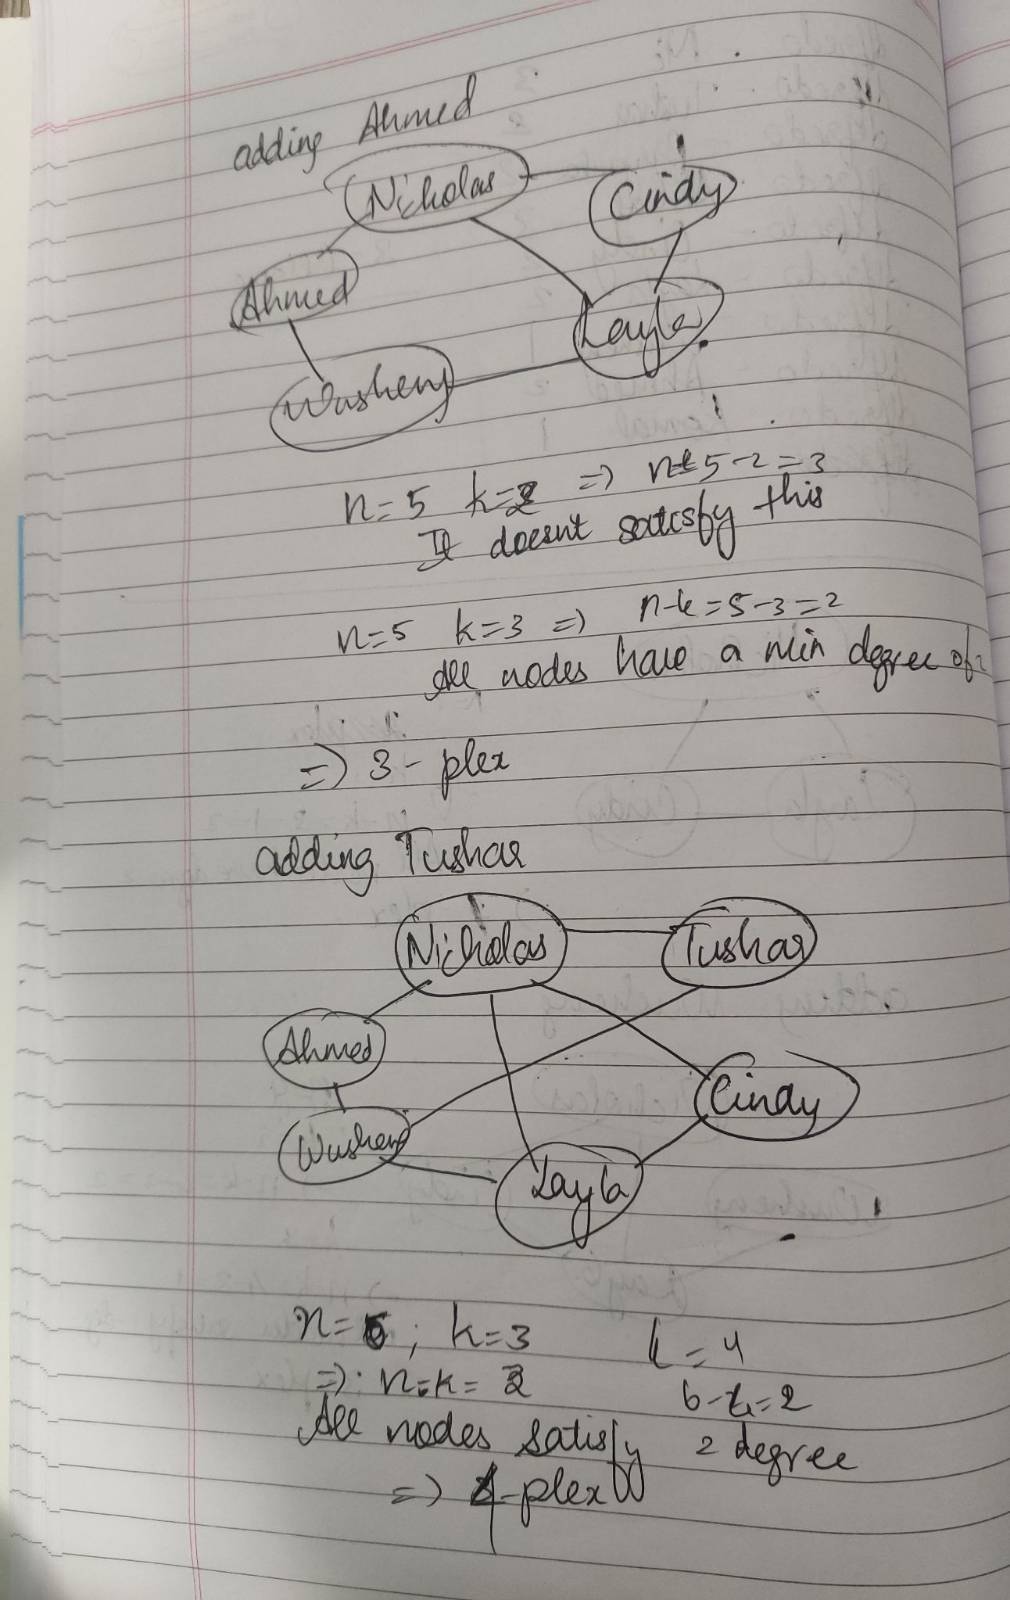 adding Ahmed
Nicholas
Cindy
Ahmed
Layla
Wusheng
n=5 k=2 => n-k 5-2=3
It doesnt satisfy this
n=5 k=3 => n-k=5-3=2
All nodes have a min degree of 2
=> 3-plex
adding Tushar
Nicholas
Tushar
Ahmed
Cindy
Wusheng
Layla
n=6; k=3
k=4
=> n-k=
6-4=2
All nodes satisfy 2 degree
=> 4-plex